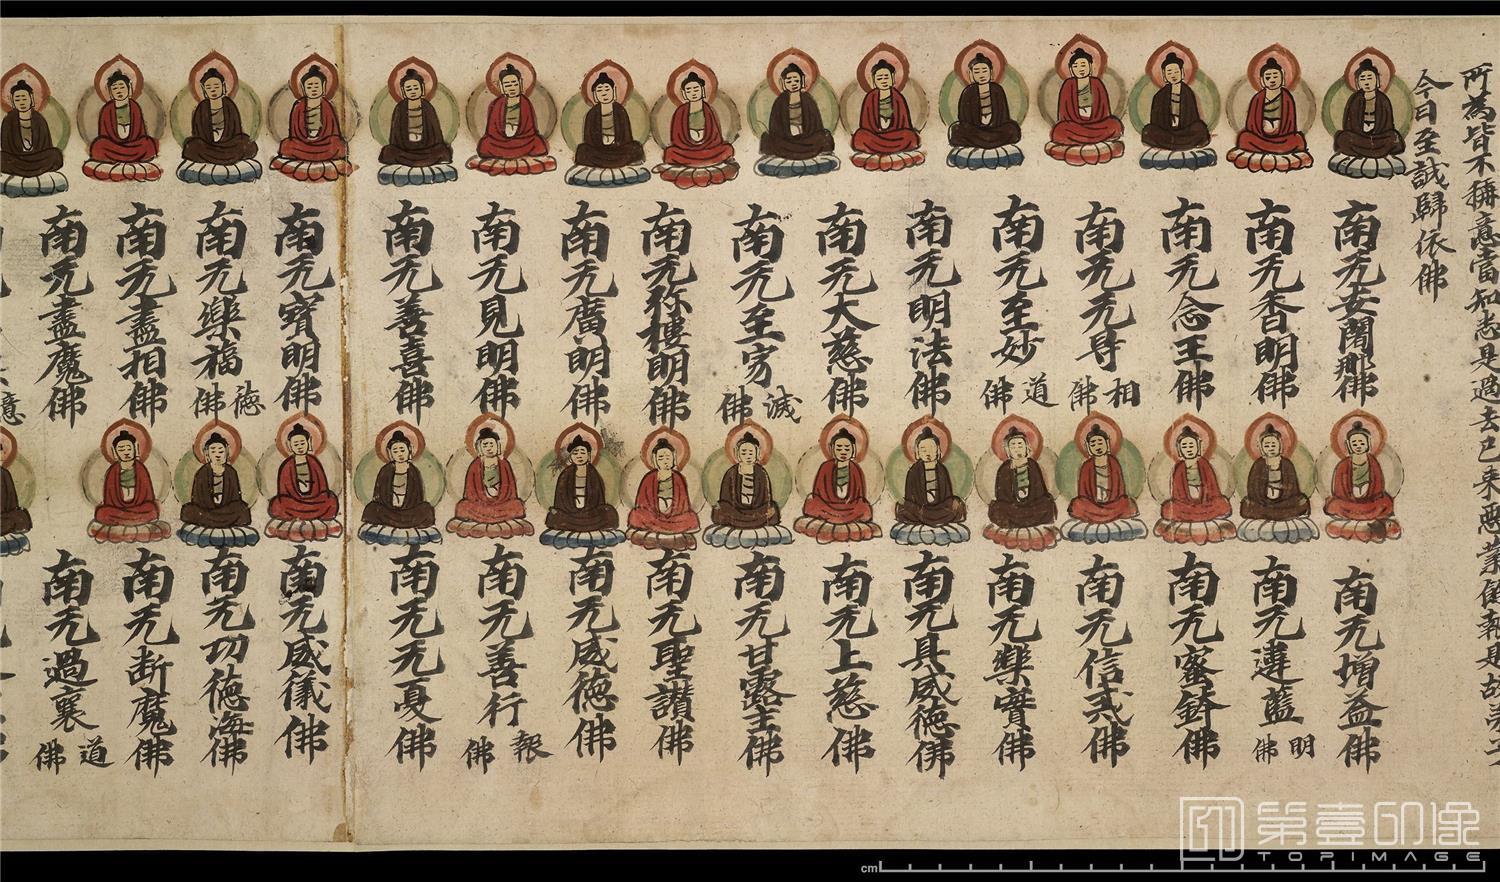 所為皆不稱意當知悉是過去已來惡業餘報是故弟子
今日至誠歸依佛
南无安闍那佛
南无增益佛
南无香明佛
南无違藍明佛
南无念王佛
南无蜜鉢佛
南无无㝵相佛
南无信戒佛
南无至妙道佛
南无樂實佛
南无明法佛
南无具威德佛
南无大慈佛
南无上慈佛
南无至寂滅佛
南无甘露主佛
南无弥樓明佛
南无聖讃佛
南无廣明佛
南无威德佛
南无見明佛
南无善行報佛
南无善喜佛
南无无憂佛
南无寶明佛
南无威儀佛
南无樂福德佛
南无功德海佛
南无盡相佛
南无断魔佛
南无盡魔佛
南无過衰道佛
意
cm
第壹印像
TOPIMAGE